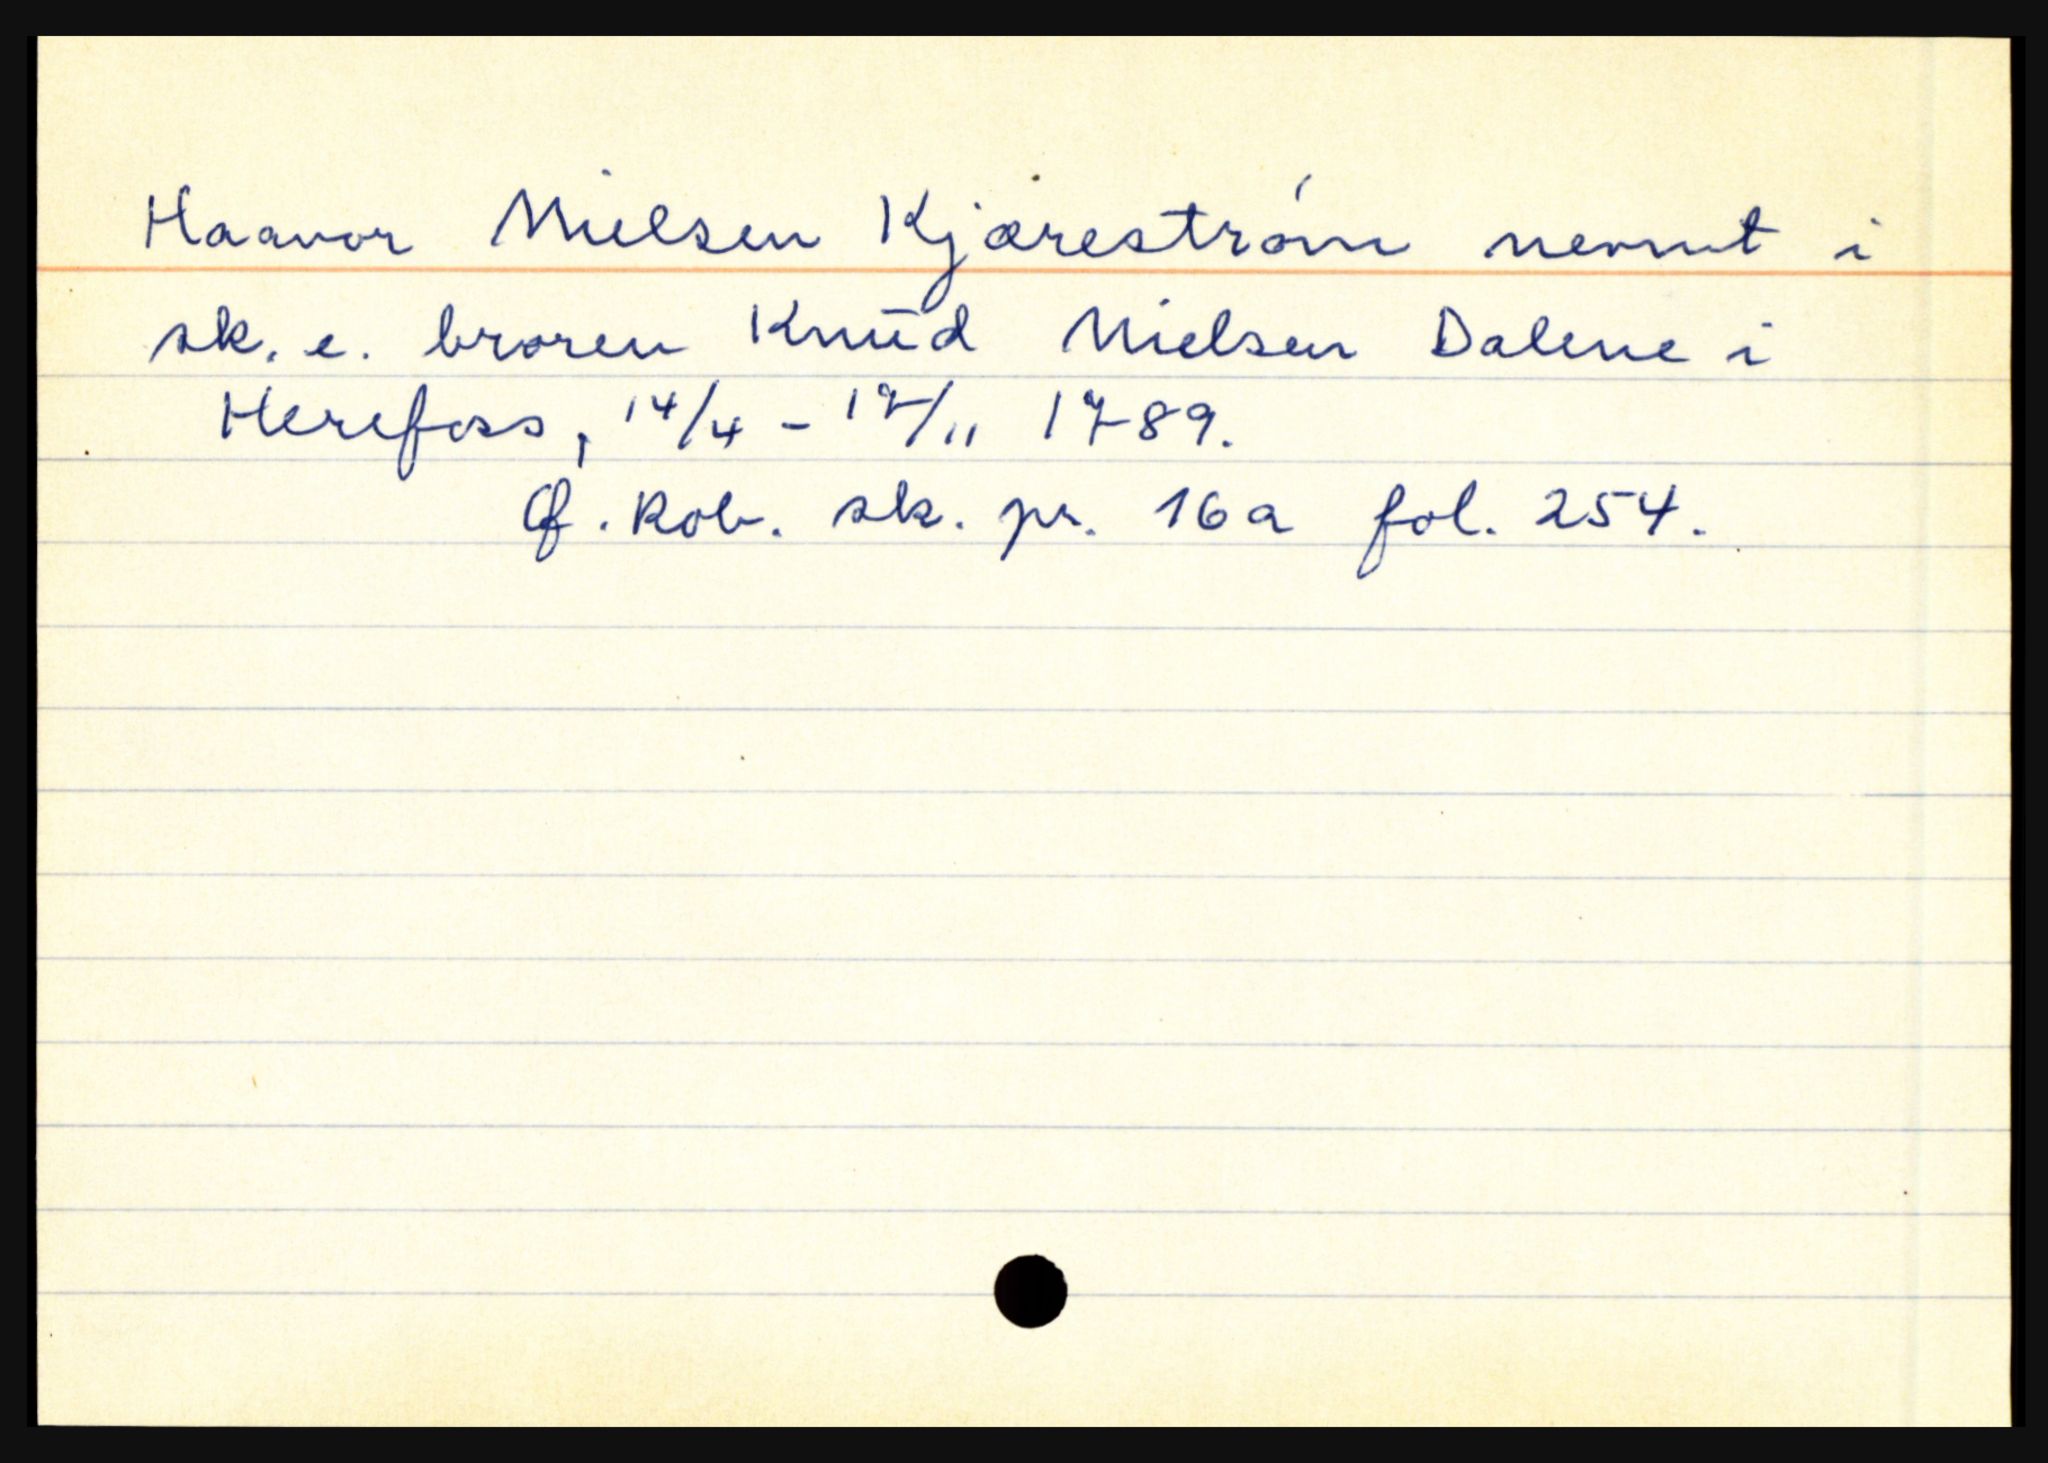 Haavor Nielsen Kjærestrøm nevnt i
sk. e. broren Knud Nielsen Dalene i
Herefoss, 14/4 - 17/11 1789.
Ø. Rob. sk. pr. 16a fol. 254.